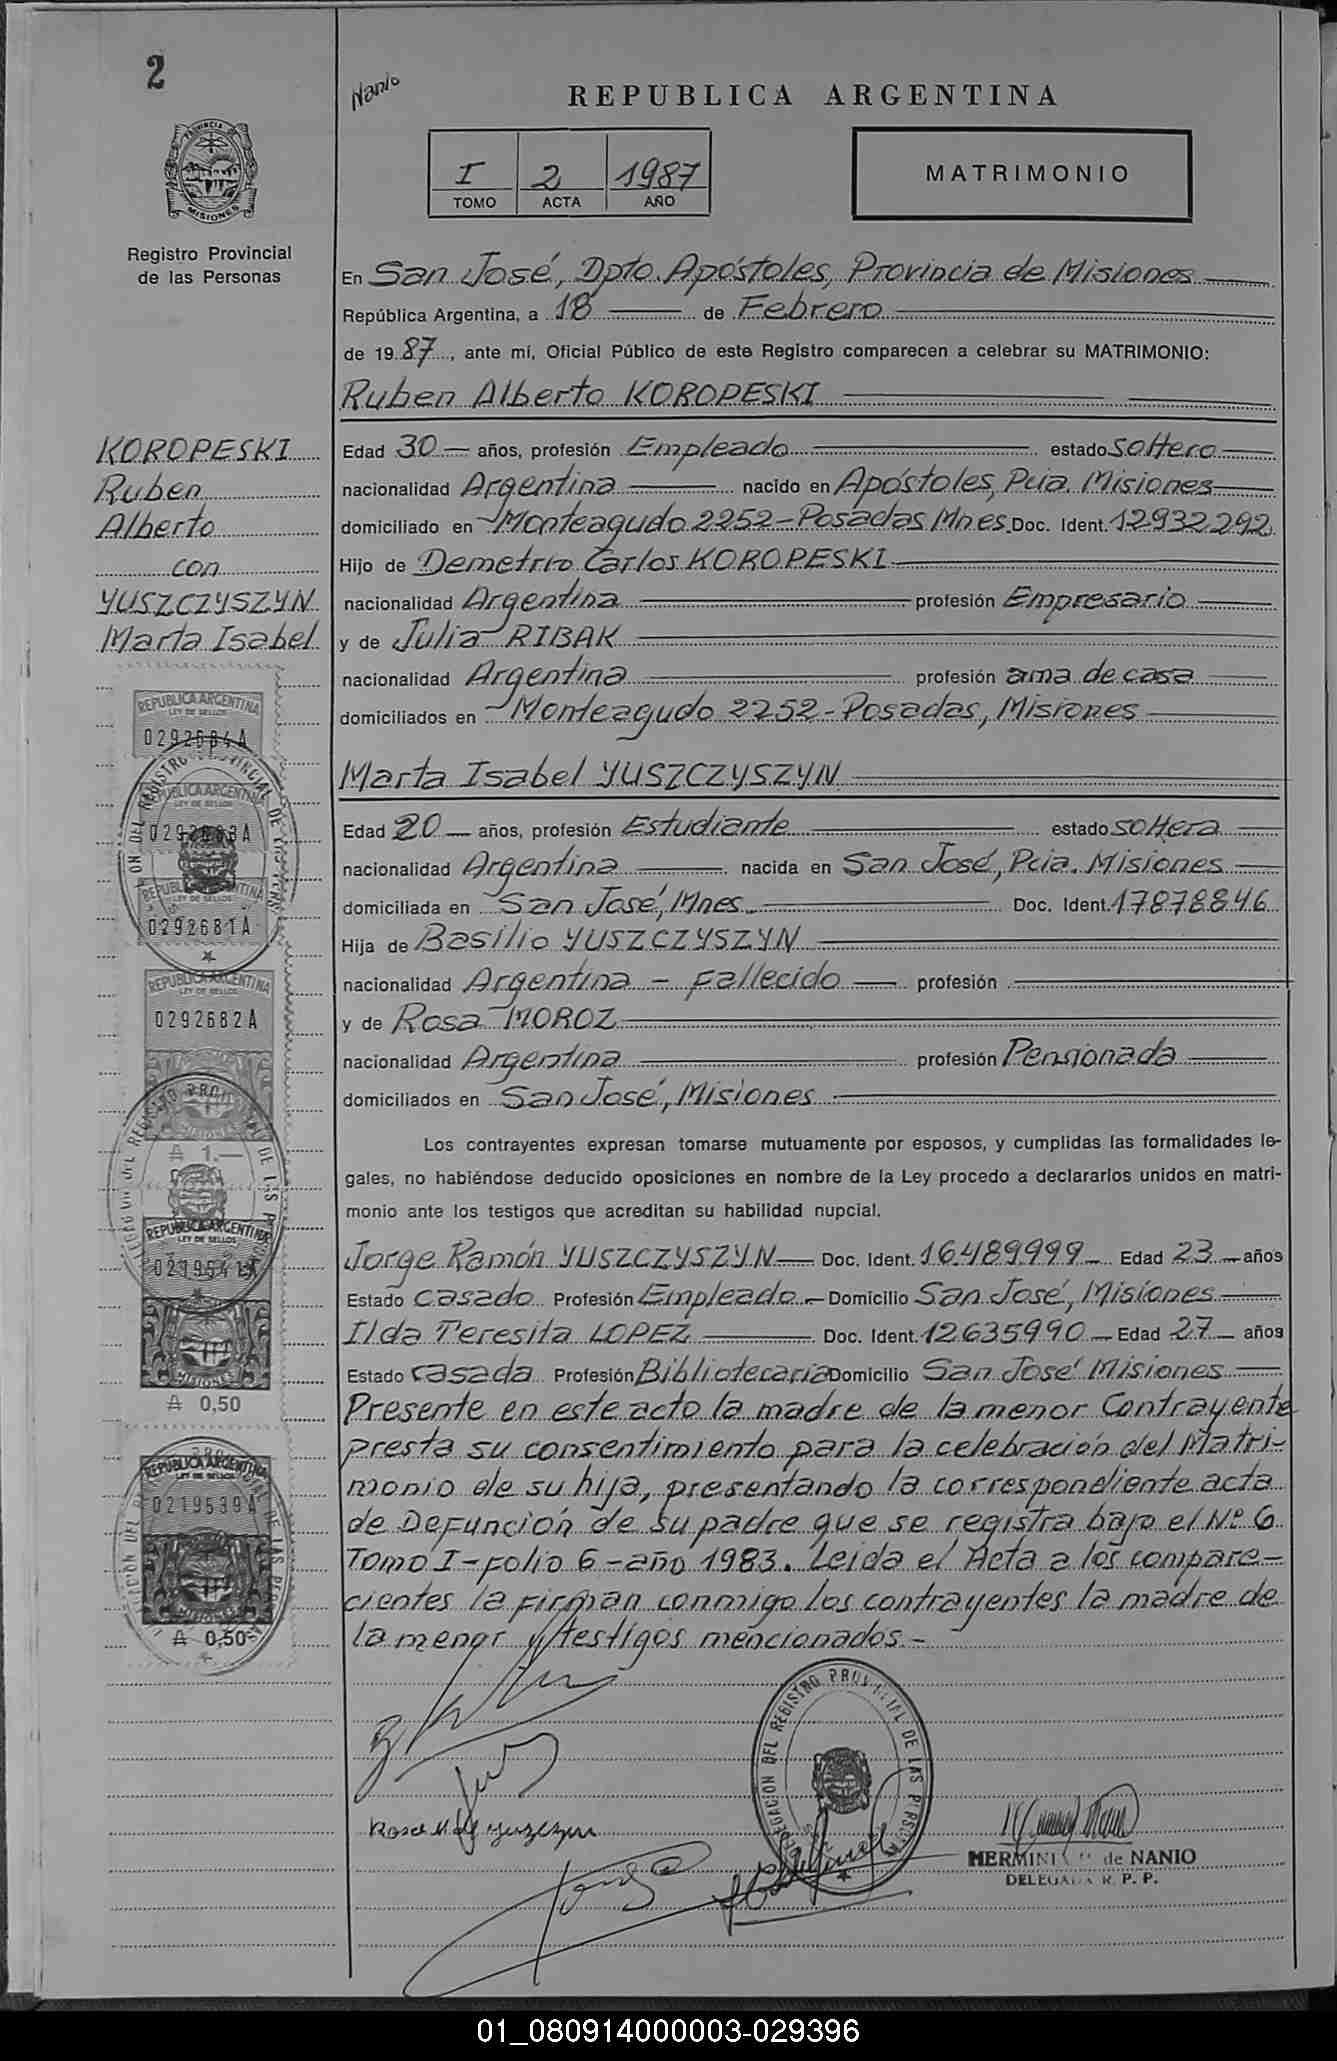 2
Nanio
REPUBLICA ARGENTINA
I 2 1987
TOMO ACTA AÑO
MATRIMONIO
PROVINCIA
MISIONES
Registro Provincial
de las Personas
En San José, Dpto. Apóstoles, Provincia de Misiones
República Argentina, a 18 de Febrero
de 1987, ante mí, Oficial Público de este Registro comparecen a celebrar su MATRIMONIO:
Ruben Alberto KOROPESKI
KOROPESKI
Ruben
Alberto
con
YUSZCZYSZYN
Marta Isabel
Edad 30 años, profesión Empleado estado soltero
nacionalidad Argentina nacido en Apóstoles, Pcia. Misiones
domiciliado en Monteagudo 2252 - Posadas Mnes. Doc. Ident. 12932292
Hijo de Demetrio Carlos KOROPESKI
nacionalidad Argentina profesión Empresario
y de Julia RIBAK
nacionalidad Argentina profesión ama de casa
domiciliados en Monteagudo 2252 - Posadas, Misiones
Marta Isabel YUSZCZYSZYN
Edad 20 años, profesión Estudiante estado soltera
nacionalidad Argentina nacida en San José, Pcia. Misiones
domiciliada en San José, Mnes. Doc. Ident. 17878846
Hija de Basilio YUSZCZYSZYN
nacionalidad Argentina - Fallecido profesión
y de Rosa MOROZ
nacionalidad Argentina profesión Pensionada
domiciliados en San José, Misiones
Los contrayentes expresan tomarse mutuamente por esposos, y cumplidas las formalidades le-
gales, no habiéndose deducido oposiciones en nombre de la Ley procedo a declararlos unidos en matri-
monio ante los testigos que acreditan su habilidad nupcial.
Jorge Ramón YUSZCZYSZYN Doc. Ident. 16.489.999 Edad 23 años
Estado casado Profesión Empleado Domicilio San José, Misiones
Ilda Teresita LOPEZ Doc. Ident. 12635990 Edad 27 años
Estado casada Profesión Bibliotecaria Domicilio San José Misiones
Presente en este acto la madre de la menor Contrayente
presta su consentimiento para la celebración del Matri-
monio de su hija, presentando la correspondiente acta
de Defunción de su padre que se registra bajo el Nº 6
Tomo I - folio 6 - año 1983. Leida el Acta a los compare-
cientes la firman conmigo los contrayentes la madre de
la menor y testigos mencionados.-
REPUBLICA ARGENTINA
LEY DE SELLOS
0292684A
REPUBLICA ARGENTINA
LEY DE SELLOS
0292683A
REPUBLICA ARGENTINA
LEY DE SELLOS
0292681A
REPUBLICA ARGENTINA
LEY DE SELLOS
0292682A
MISIONES
₳ 1.—
REPUBLICA ARGENTINA
LEY DE SELLOS
MISIONES
₳ 0,50
REPUBLICA ARGENTINA
LEY DE SELLOS
0219539A
MISIONES
₳ 0,50
DELEGACION DEL REGISTRO PROVINCIAL DE LAS PERSONAS
Rosa M de
Jorge
de NANIO
DELEGADA R. P. P.
01_080914000003-029396